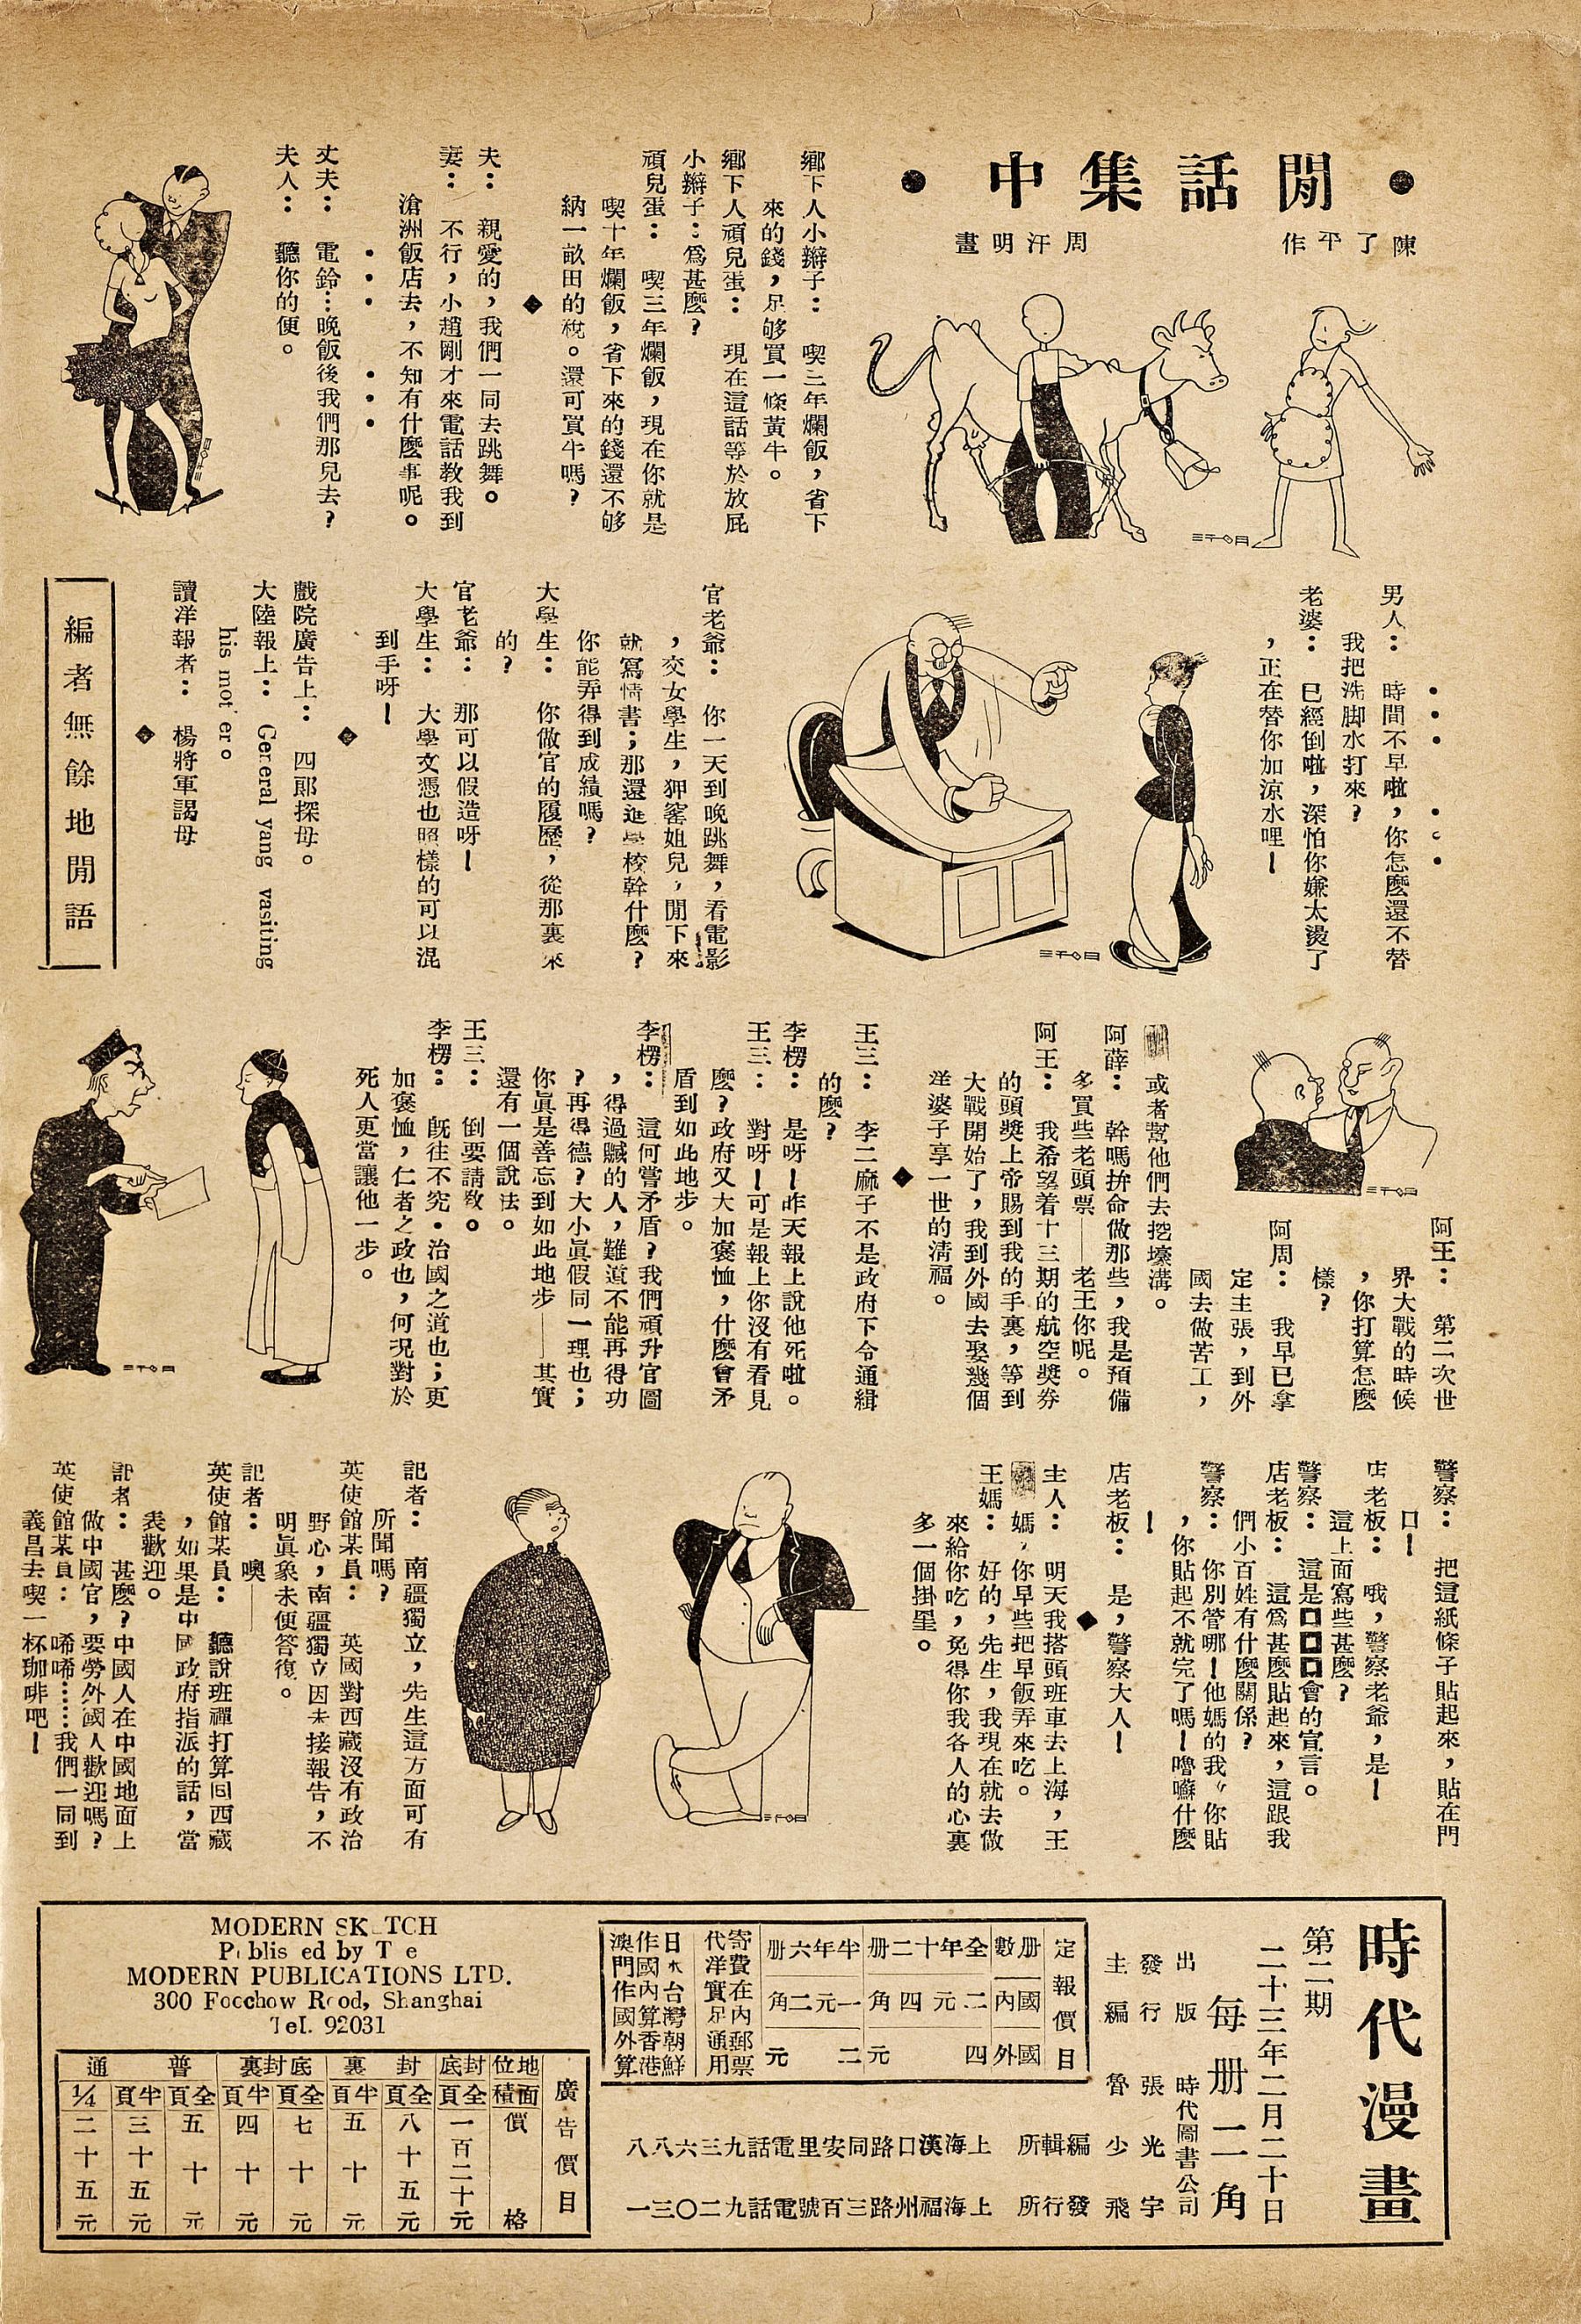 •閒話集中•
陳了平作
周汗明畫
鄉下人小辮子：　喫三年爛飯，省下
來的錢，足够買一條黃牛。
鄉下人頑兒蛋：　現在這話等於放屁
小辮子：爲甚麽？
頑兒蛋：　喫三年爛飯，現在你就是
喫十年爛飯，省下來的錢還不够
納一畝田的稅。還可買牛嗎？
◆
夫：　親愛的，我們一同去跳舞。
妻：　不行，小趙剛才來電話教我到
滄洲飯店去，不知有什麽事呢。
•••　•••
丈夫：　電鈴…晚飯後我們那兒去？
夫人：　聽你的便。
•••　•••
男人：　時間不早啦，你怎麽還不替
我把洗脚水打來？
老婆：　已經倒啦，深怕你嫌太燙了
，正在替你加涼水哩！
官老爺：　你一天到晚跳舞，看電影
，交女學生，狎窰姐兒，閒下來
就寫情書；那還進學校幹什麽？
你能弄得到成績嗎？
大學生：　你做官的履歷，從那裏來
的？
官老爺：　那可以假造呀！
大學生：　大學文憑也照樣的可以混
到手呀！
◆
戲院廣告上：　四郎探母。
大陸報上：　General yang vasiting
his mot er。
讀洋報者：　楊將軍謁母
◆
編者無餘地閒語
阿王：　第二次世
界大戰的時候
，你打算怎麽
樣？
阿周：　我早已拿
定主張，到外
國去做苦工，
或者幫他們去挖壕溝。
阿薛：　幹嗎拚命做那些，我是預備
多買些老頭票——老王你呢。
阿王：　我希望着十三期的航空獎券
的頭獎上帝賜到我的手裏，等到
大戰開始了，我到外國去娶幾個
洋婆子享一世的淸福。
◆
王三：　李二麻子不是政府下令通緝
的麽？
李楞：　是呀！昨天報上說他死啦。
王三：　對呀！可是報上你沒有看見
麽？政府又大加褒恤，什麽會矛
盾到如此地步。
李楞：　這何嘗矛盾？我們頑升官圖
，得過贓的人，難道不能再得功
？再得德？大小眞假同一理也；
你眞是善忘到如此地步——其實
還有一個說法。
王三：　倒要請敎。
李楞：　旣往不究•治國之道也；更
加褒恤，仁者之政也，何況對於
死人更當讓他一步。
警察：　把這紙條子貼起來，貼在門
口！
店老板：　哦，警察老爺，是！
這上面寫些甚麽？
警察：　這是口口口會的宣言。
店老板：　這爲甚麽貼起來，這跟我
們小百姓有什麽關係？
警察：　你別管哪！他媽的我〃你貼
，你貼起不就完了嗎！嚕囌什麽
！
店老板：　是，警察大人！
◆
主人：　明天我搭頭班車去上海，王
媽，你早些把早飯弄來吃。
王媽：　好的，先生，我現在就去做
來給你吃，免得你我各人的心裏
多一個掛罣。
記者：　南疆獨立，先生這方面可有
所聞嗎？
英使館某員：　英國對西藏沒有政治
野心，南疆獨立因未接報告，不
明眞象未便答復。
記者：　噢——
英使館某員：　聽說班禪打算回西藏
，如果是中國政府指派的話，當
表歡迎。
記者：　甚麽？中國人在中國地面上
做中國官，要勞外國人歡迎嗎？
英使館某員：　唏唏……我們一同到
義昌去喫一杯珈啡吧！
時代漫畫
第二期
二十三年二月二十日
每册二角
出版　時代圖書公司
發行　張光宇
主編　魯少飛
編輯所　上海漢口路同安里電話九三六八八
發行所　上海福州路三百號電話九二〇三一
定報價目
册數　國內　國外
全年十二册　二元四角　四元
半年六册　一元二角　二元
寄費在內郵票
代洋實足通用
日本台灣朝鮮
作國內算香港
澳門作國外算
MODERN SK TCH
P blis ed by T e
MODERN PUBLICATIONS LTD.
300 Foochow Road, Shanghai
Tel. 92031
廣告價目
地位　封底　封裏　底封裏　普通
面積　全頁　全頁　半頁　全頁　半頁　全頁　半頁　1/4
價格　一百二十元　八十五元　五十元　七十元　四十元　五十元　三十五元　二十五元